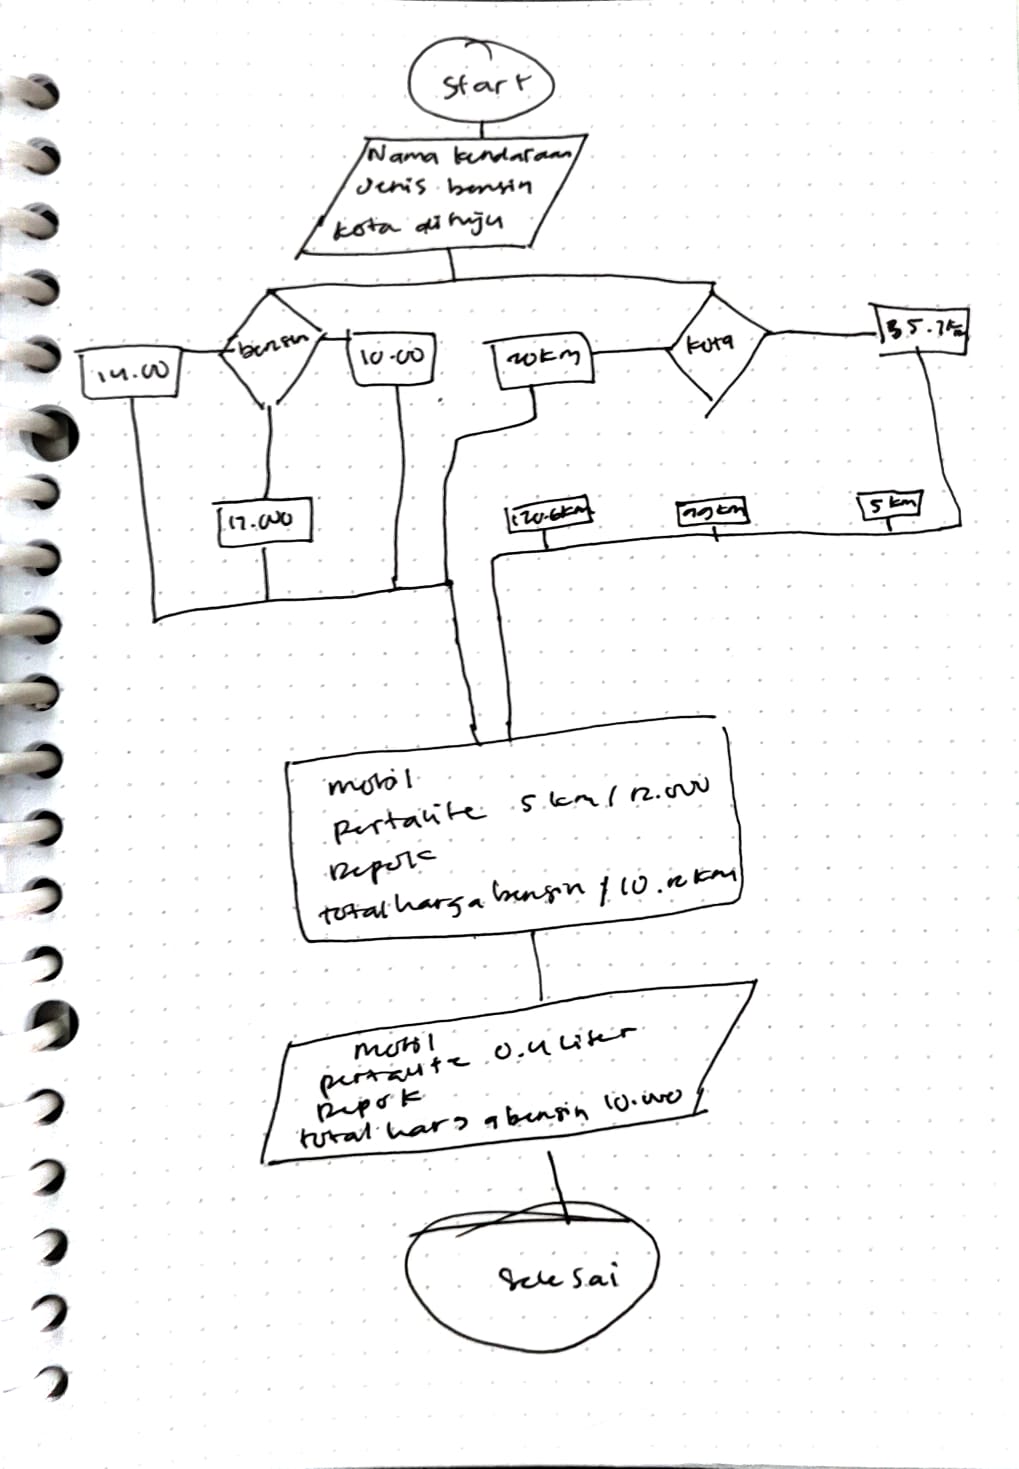 Start
Nama kendaraan
Jenis bensin
kota dituju
bensin
kota
14.00
10.00
20km
35.7km
12.000
120.6km
29km
5km
mobil
pertalite 5 km / 12.000
Depok
total harga bensin / 10.12 km
mobil
pertalite 0.4 liter
Depok
total harga bensin 10.000
Selesai